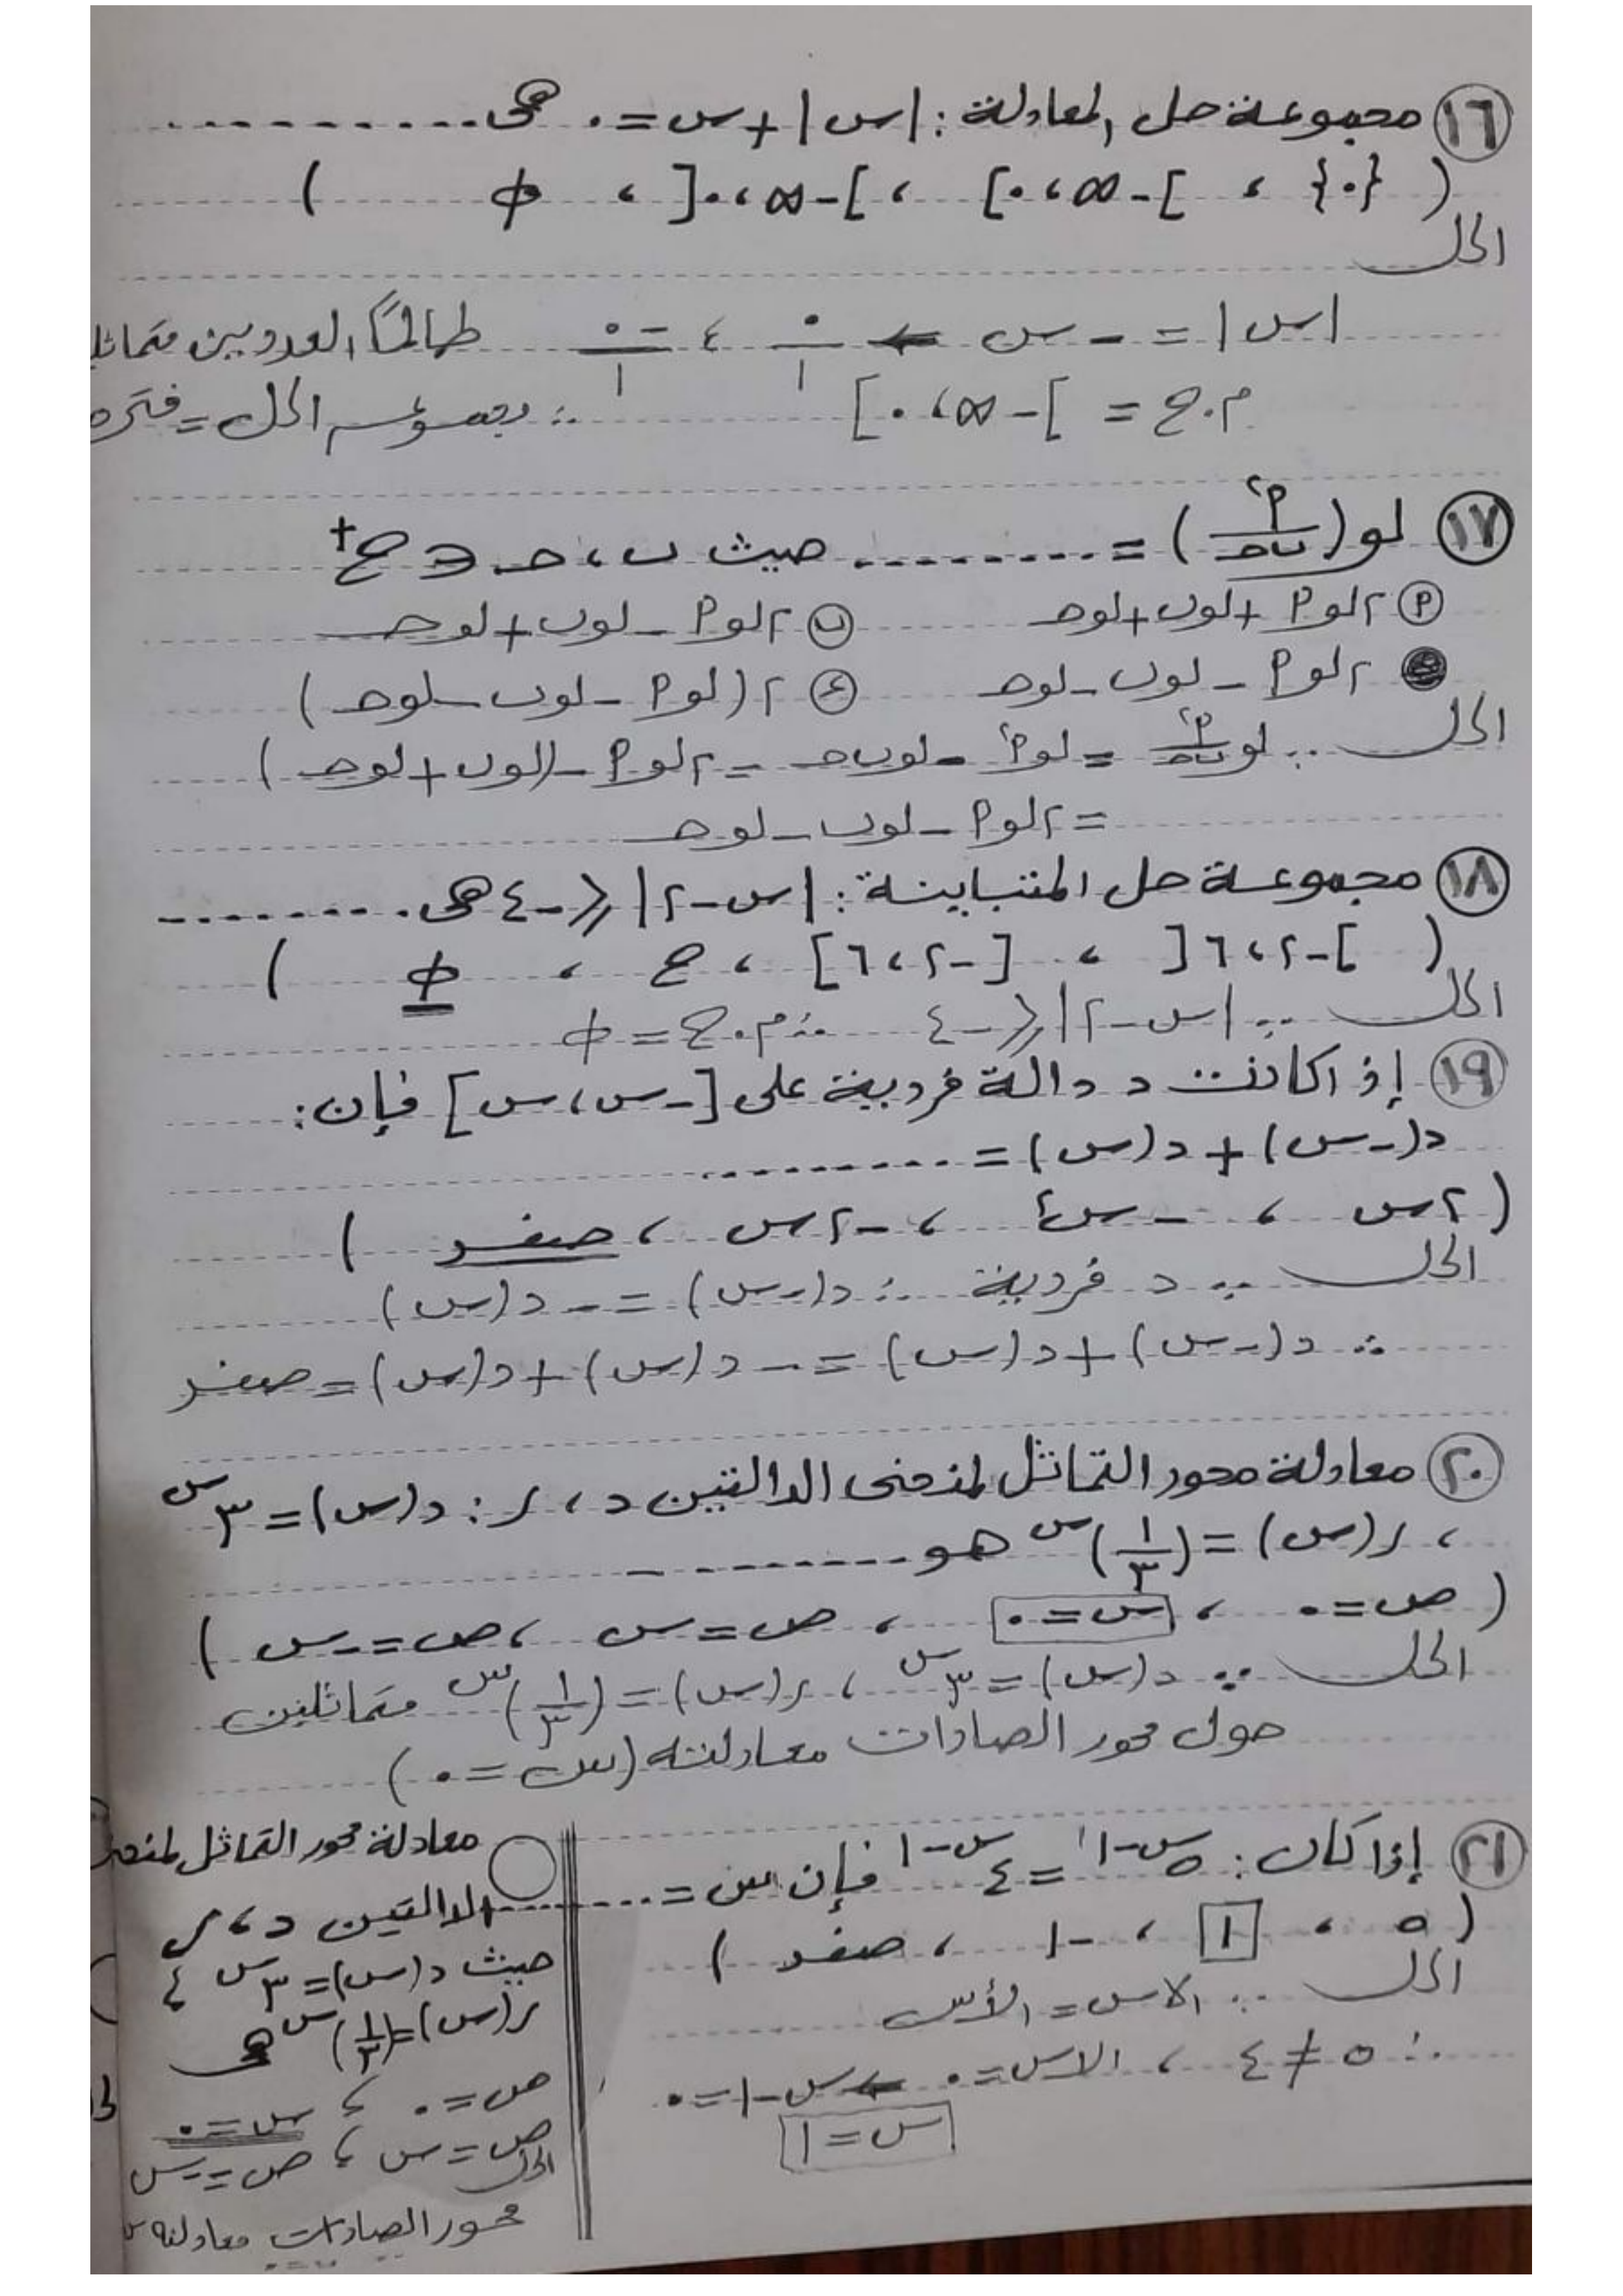 ١٦ مجموعة حل المعادلة : |س| + س = ٠ هى ..........
( {٠} ، ]-∞، ٠[ ، ]-∞، ٠] ، ϕ )
الحل
|س| = -س ← ٠/١ ، -٠/١ طالما العددين
م.ح = ]-∞، ٠] ∴ مجموعة الحل = فترة
١٧ لو(٢م/ب حـ) = .......... حيث ب، حـ ∈ ح+
أ ٢لو أ + لوب + لوحـ ب ٢لو أ - لوب + لوحـ
٢لو أ - لوب - لوحـ ء ٢(لو أ - لوب - لوحـ)
الحل ∵ لو أ٢/ب حـ = لو أ٢ - لوب حـ = ٢لو أ - (لوب + لوحـ)
= ٢لو أ - لوب - لوحـ
١٨ مجموعة حل المتباينة : |س-٢| ≤ -٤ هى ..........
( ]-٢، ٦[ ، [-٢، ٦] ، ح ، ϕ )
الحل ∵ |س-٢| ≤ -٤ ∴ م.ح = ϕ
١٩ إذا كانت د دالة فردية على [-س، س] فإن :
د(-س) + د(س) = ..........
( ٢س ، -س٢ ، -٢س ، صفر )
الحل ∵ د فردية ∴ د(-س) = -د(س)
∴ د(-س) + د(س) = -د(س) + د(س) = صفر
٢٠ معادلة محور التماثل لمنحنى الدالتين د ، ر : د(س) = ٣س
، ر(س) = (١/٣)س هو ..........
( ص=٠ ، س=٠ ، ص=س ، ص=-س )
الحل ∵ د(س) = ٣س ، ر(س) = (١/٣)س متماثلين
حول محور الصادات معادلته (س=٠)
٢١ إذا كان : ٥س-١ = ٤س-١ فإن س = ..........
( ٥ ، ١ ، -١ ، صفر )
الحل ∵ الاس = الأس
∵ ٥ ≠ ٤ ، الاس = ٠ ← س-١ = ٠
س = ١
معادلة محور التماثل
الدالتين د ، ر
حيث د(س) = ٣س ،
ر(س) = (١/٣)س هى
ص=٠ ، س=٠
ص=س ، ص=-س
الحل
محور الصادات معادلته